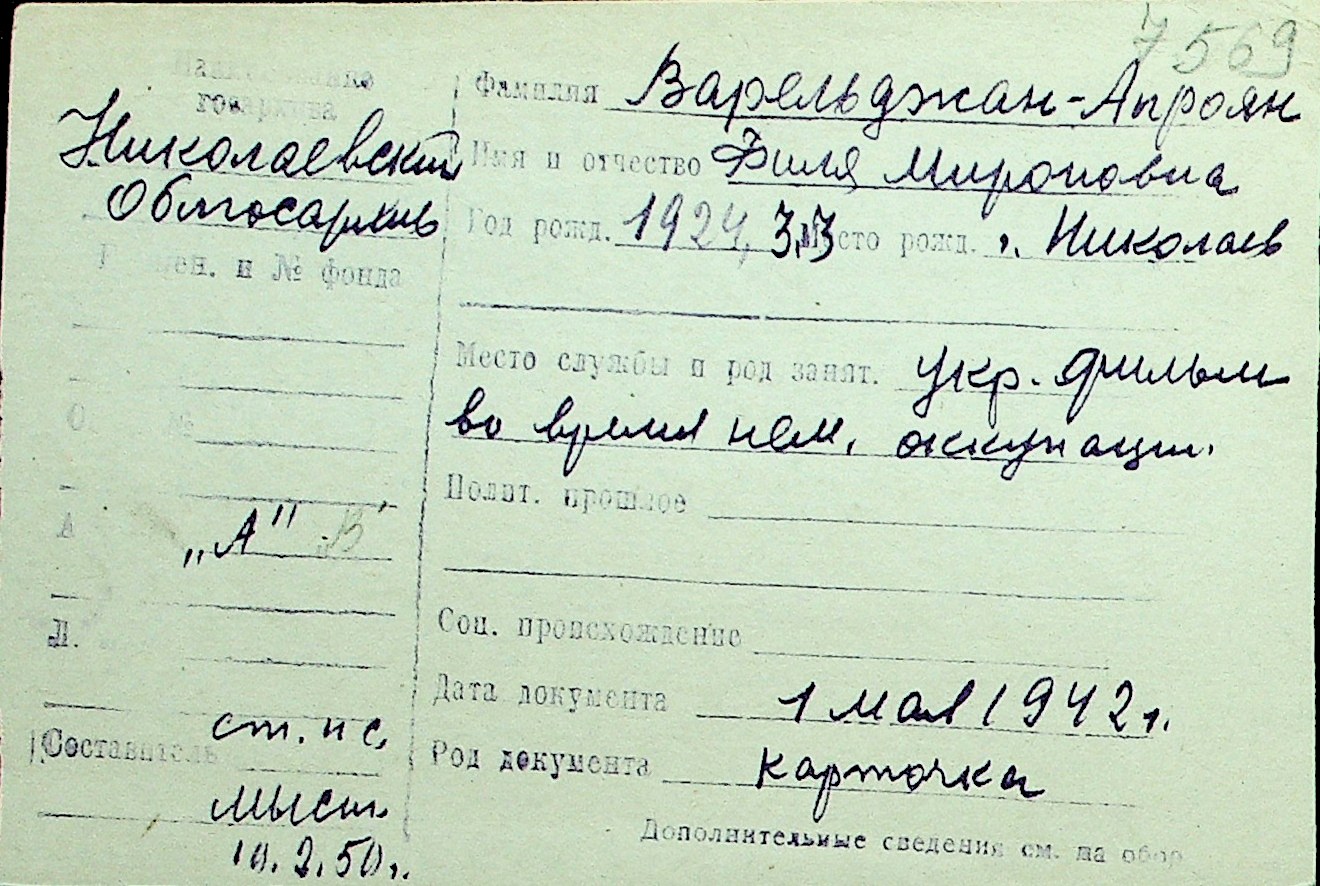 7569
Наименование
госархива
Николаевский
Облгосархив
№ фонда
"А" В
Л.
Составитель ст. и с.
мыст.
10.2.50г.
Фамилия Варельджан-Апроян
Имя и отчество Филя Мироновна
Год рожд. 1924, 3,3 Место рожд. г. Николаев
Место службы и род занят. Укр. фильм
во время нем. оккупации.
Полит. прошлое
Соц. происхождение
Дата документа 1 мая 1942 г.
Род документа карточка
Дополнительные сведения см. на обор.